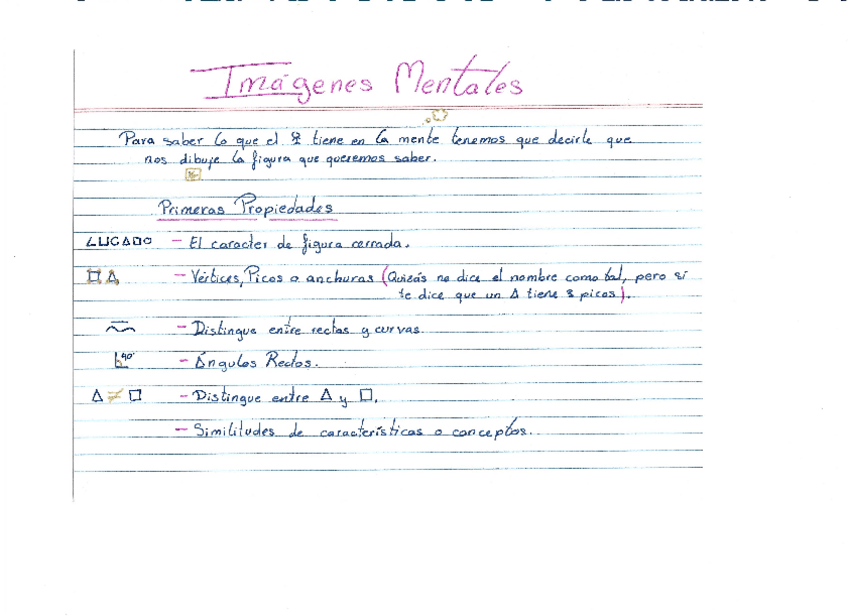 Imágenes Mentales
Para saber lo que el tiene en la mente tenemos que decirle que
nos dibuje la figura que queremos saber.
Primeras Propiedades
- El caracter de figura cerrada.
- Vértices, Picos o anchuras (Quizás no dice el nombre como tal, pero si
te dice que un Δ tiene 3 picos).
- Distingue entre rectas y curvas.
90° - Ángulos Rectos.
Δ ≠ □ - Distingue entre Δ y □.
- Similitudes de características o conceptos.